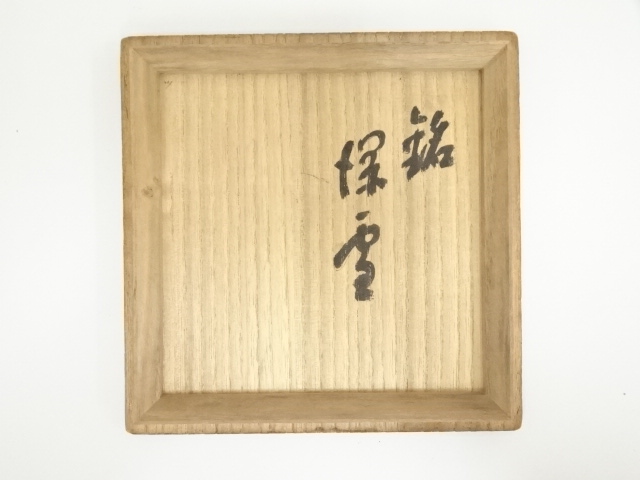 銘
深雪